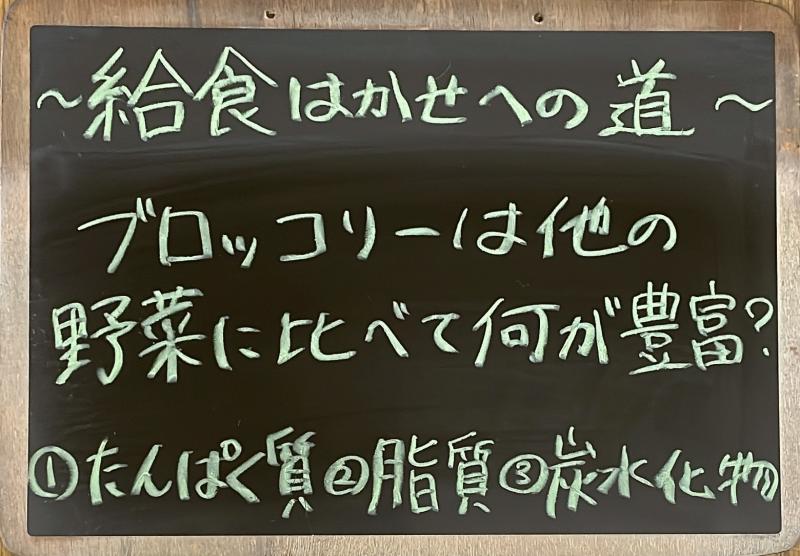 ～給食はかせへの道～
ブロッコリーは他の
野菜に比べて何が豊富?
①たんぱく質②脂質③炭水化物